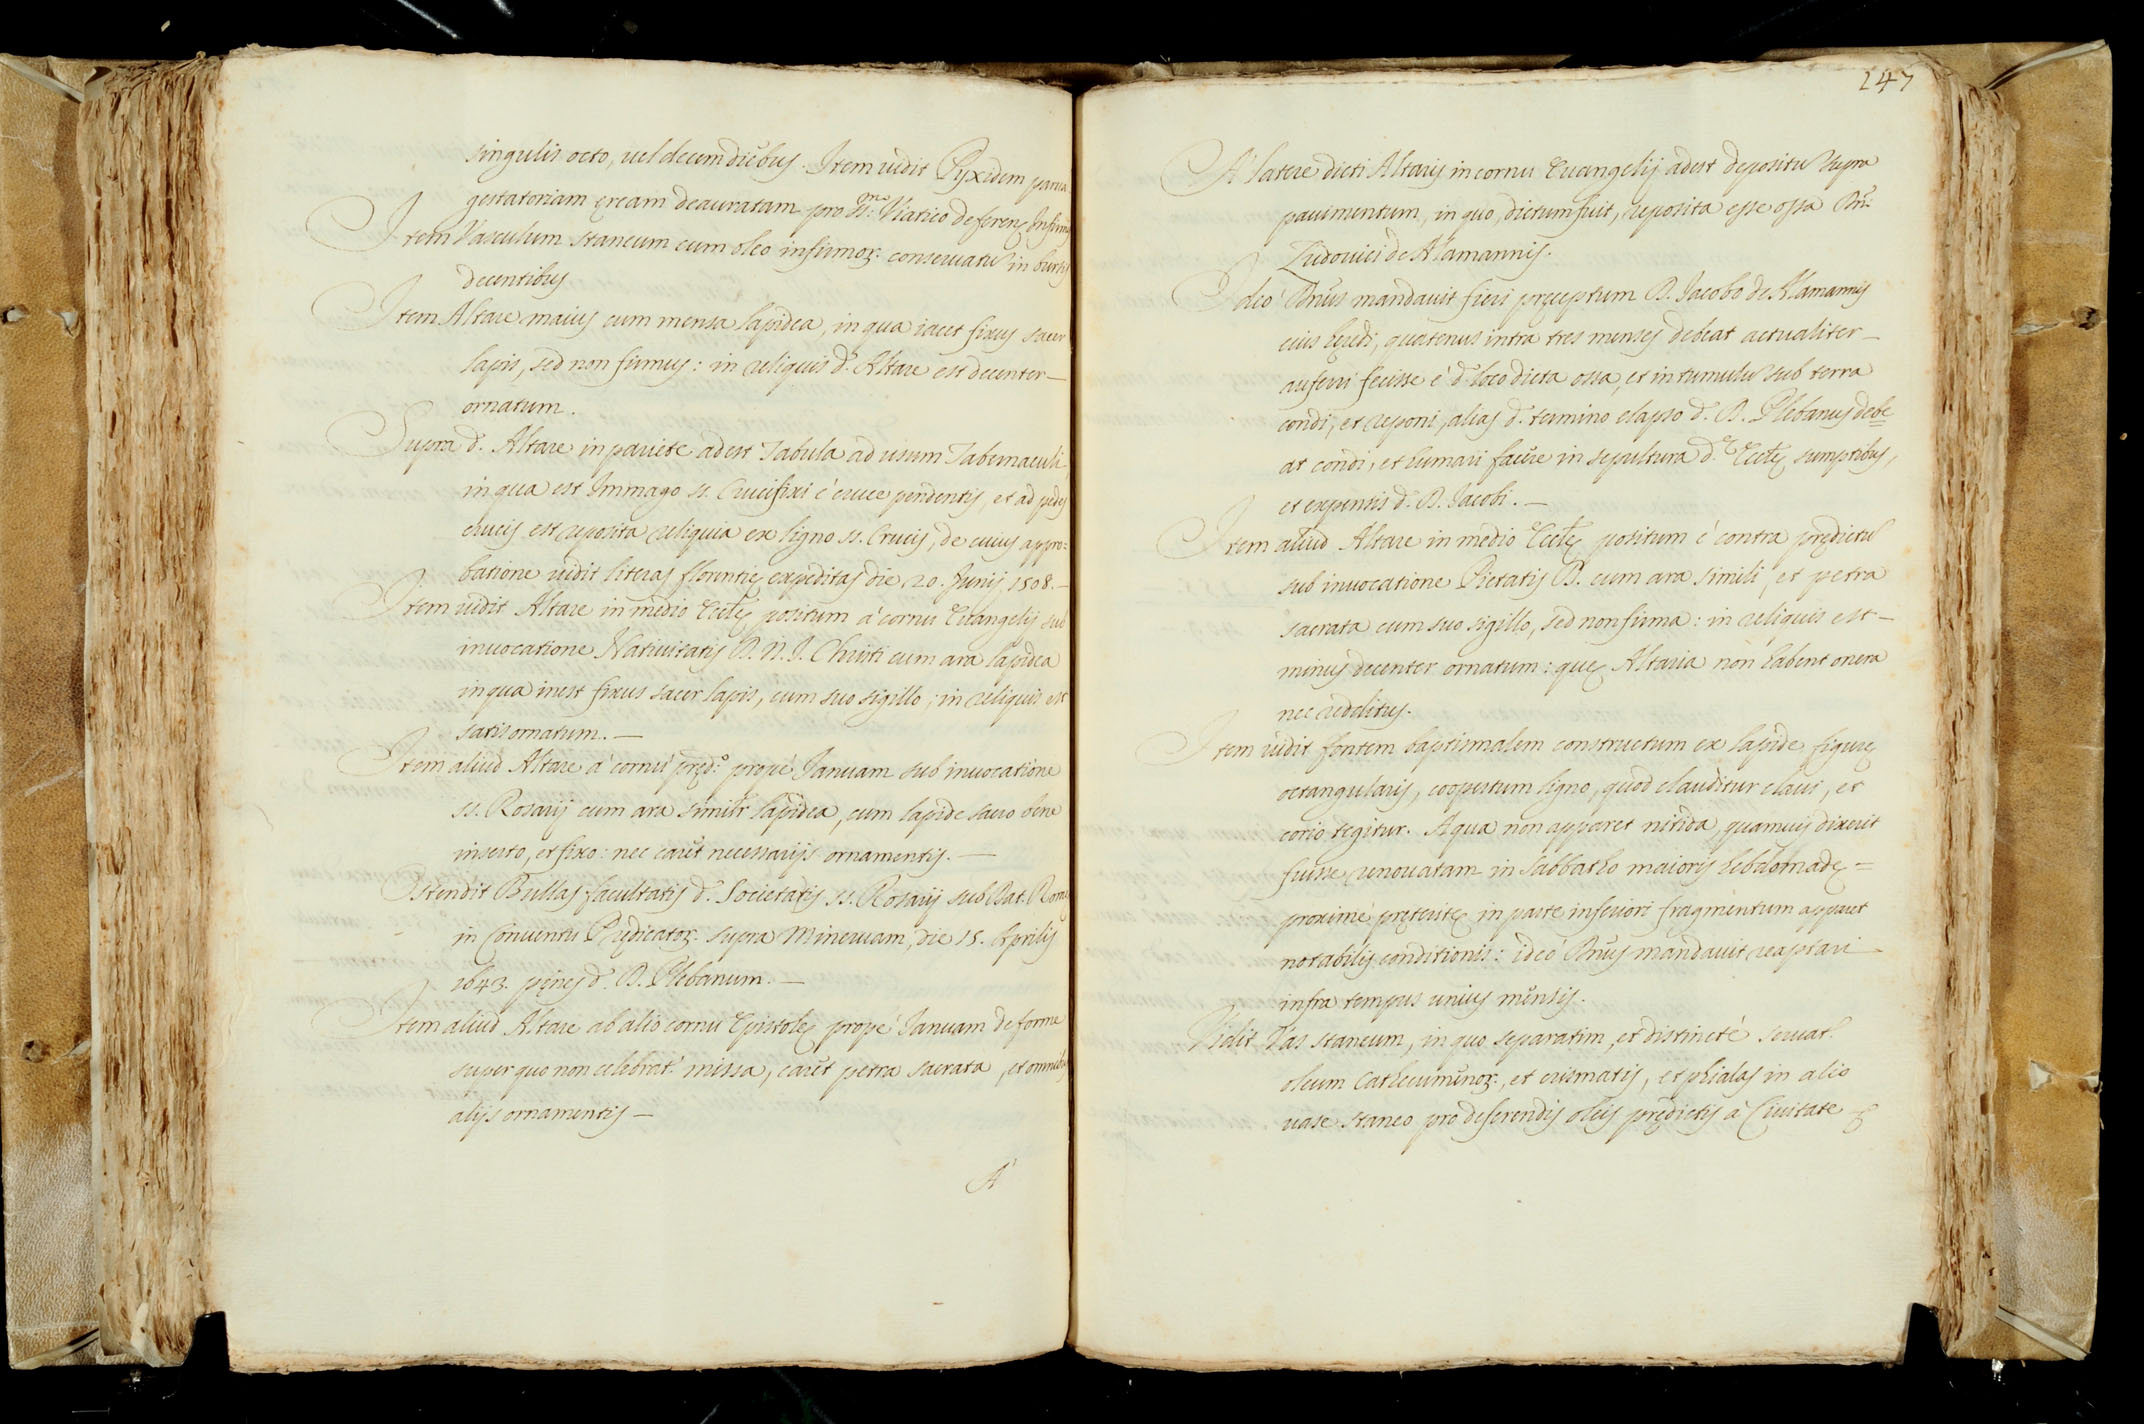 singulis octo, uel decem diebus. Item uidit Pyxidem paruā
gestatoriam ęream deauratam pro SS.mo Viatico deferenę Infirmis
Item Vasculum staneum cum oleo infirmoꝝ: conseruatũ in bursis
decentibus
Item Altare maius cum mensa lapidea, in qua iacet fixus sacer
lapis, sed non firmus: in reliquis d. Altare est decenter –
ornatum.
Supra d. Altare in pariete adest Tabula ad usum Tabernaculi,
in qua est Immago ss. Crucifixi è cruce pendentis, et ad pedes
crucis est reposita reliquia ex ligno ss. Crucis, de cuius appro=
batione uidit literas florentię expeditas die 20. Junij 1508. –
Item uidit Altare in medio Eccłę positum à cornu Euangelij sub
inuocatione Natiuitatis D. N. J. Christi cum ara lapidea
in qua inest fixus sacer lapis, cum suo sigillo; in reliquis est
satis ornatum. –
Item aliud Altare à cornù pręd.o propè Januam sub inuocatione
ss. Rosarij cum ara similr lapidea, cum lapide sacro bene
inserto, et fixo: nec caret necessarijs ornamentis. –
Ostendit Bullas facultatis d. Societatis ss. Rosarij sub Dat. Romę
in Conuentu Prędicatoꝝ. supra Mineruam, die 15. Aprilis
1643. pęnes d. D. Plebanum. –
Item aliud Altare ab alio cornu Epistolę propè Januam deforme
super quo non celebrat: missa, caret petra sacrata, et omnibus
alijs ornamentis –
A
247
A' latere dicti Altaris in cornu Euangelij adest depositũ supra
pauimentum, in quo, dictum fuit, reposita esse ossa Dñi:
Ludouici de Alamannis.
Ideò Dñus mandauit fieri pręceptum D. Jacobo de Alamannis
eius hęredi, quatenus intra tres menses debeat actualiter –
auferri fecisse è d. loco dicta ossa, et in tumulũ sub terra
condi, et reponi, alias d. termino elapso d. D. Plebanus debe=
at condi, et humari facere in sepultura d.ę Eccłę sumptibus,
et expensis d. D. Jacobi. –
Item aliud Altare in medio Eccłę positum è contra prędictũ
sub inuocatione Pietatis D. cum ara simili, et petra
sacrata cum suo sigillo, sed non firma: in reliquis est –
minus decenter ornatum: quę Altaria non habent onera
nec redditus.
Item uidit fontem baptismalem constructum ex lapide figurę
octangularis, coopertum ligno, quod clauditur claui, et
corio tegitur. Aqua non apparet nitida, quamuis dixerit
fuisse renouatam in sabbatho maioris hebdomadę =
proximè pręteritę in parte inferiori fragmentum apparet
notabilis conditionis: ideò Dñus mandauit reaptari –
infra tempus unius mensis.
Vidit Vas staneum, in quo separatim, et distinctè seruat.
oleum Cathecumenoꝝ:, et crismatis, et phialas in alio
uase staneo pro deferendis oleis prędictis à Ciuitate